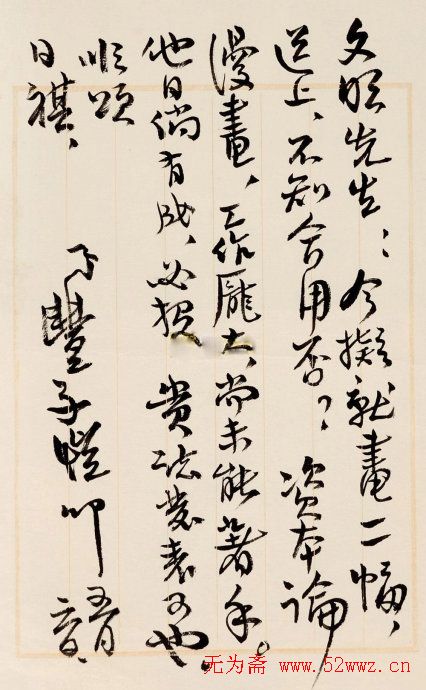 文眎先生：今拟就畫二幅、
送上、不知合用否？资本論
漫畫、工作龐大、尚未能著手。
他日倘有成、必投 貴誌發表可也。
順頌
日祺、
弟豐子愷叩 五月
六日
无为斋 www.52wwz.cn